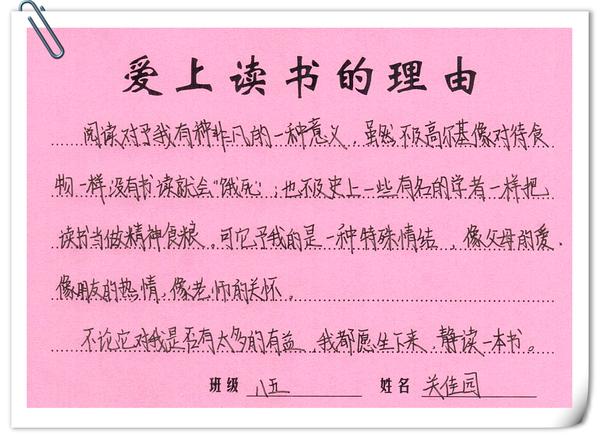 爱上读书的理由
阅读对予我有种非凡的一种意义,虽然不及高尔基像对待食
物一样,没有书读就会“饿死”;也不及史上一些有名的学者一样把
读书当做精神食粮。可它予我的是一种特殊情结,像父母的爱、
像朋友的热情,像老师的关怀。
不论它对我是否有太多的有益,我都愿坐下来,静读一本书。
班级 八五 姓名 关佳园